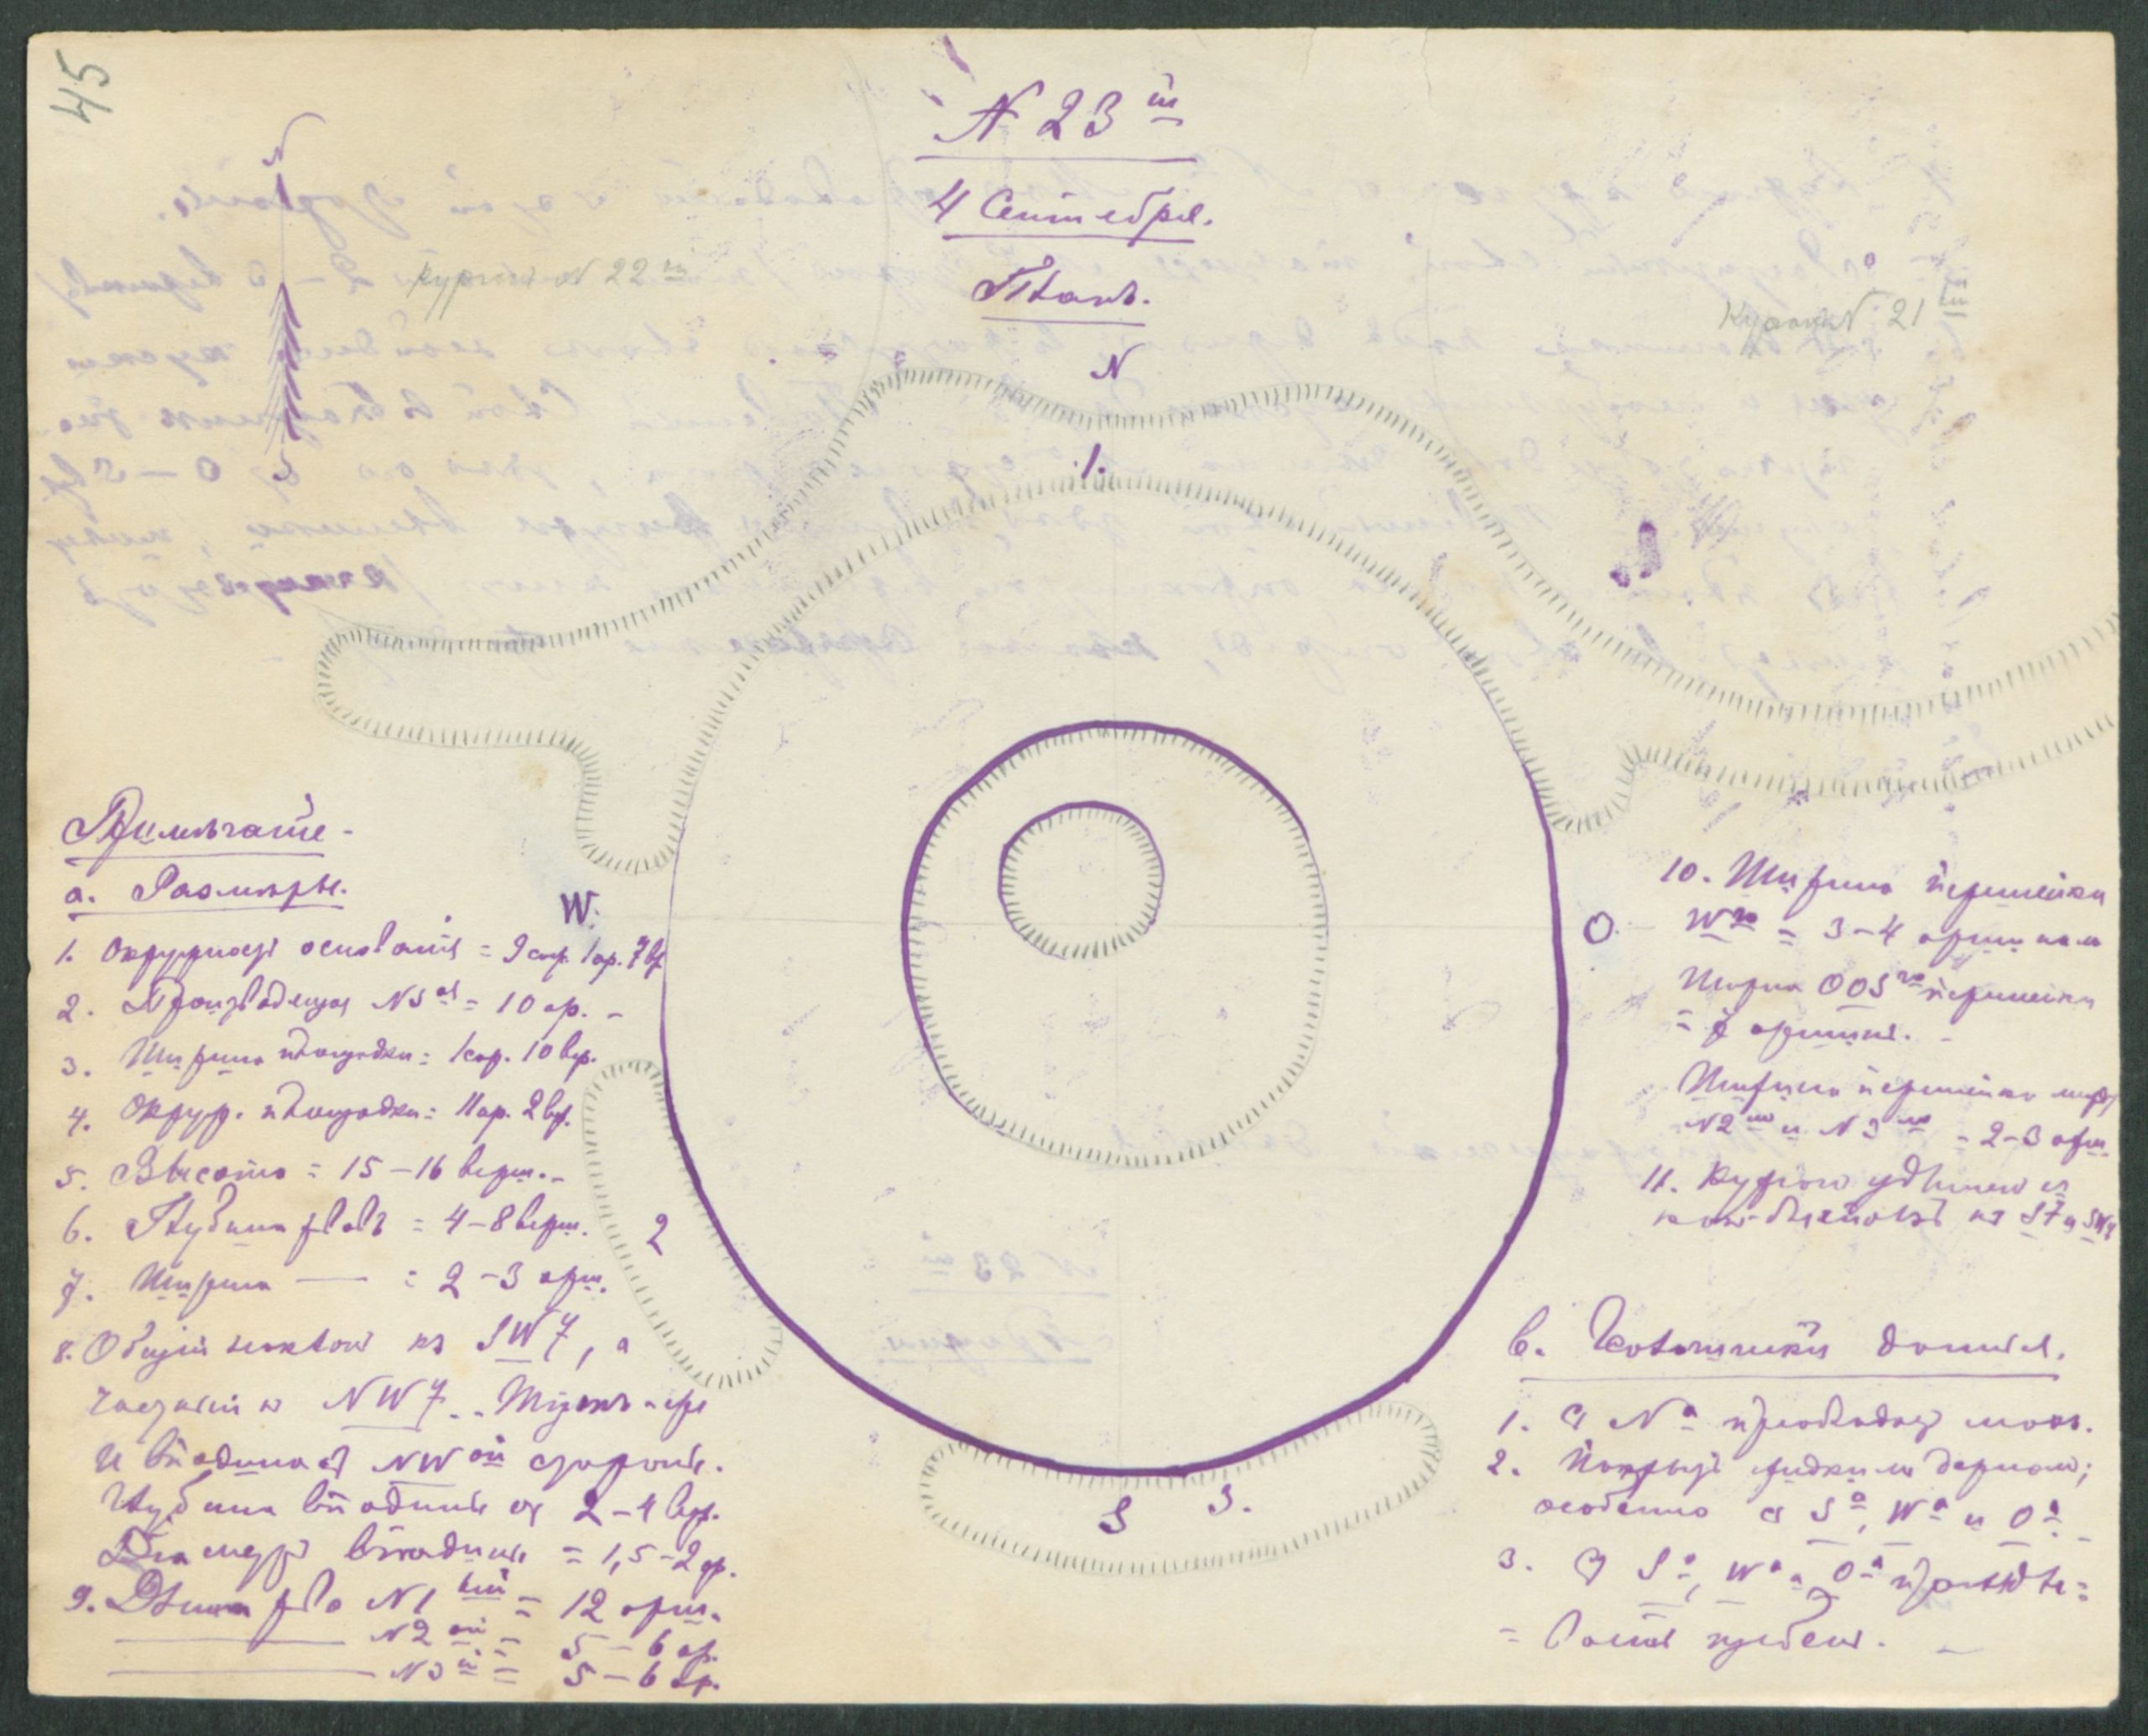 45
N 23 й
4 Сентебря.
Планъ.
N
S
Курганъ N 22 й
Курганъ N 21 й
N
1.
W.
O.
2
S
3.
Примѣчаніе -
а. Размѣры.
1. Окружность основанія = 9 саж. 1 ар. 7 в.
2. Производящая NS ая = 10 ар. -
3. Ширина площадки = 1 саж. 10 вер.
4. Окруж. площадки = 11 ар. 2 вер.
5. Высота = 15 – 16 верш. -
6. Глубина рвовъ = 4 – 8 верш.
7. Ширина —— = 2 – 3 арш.
8. Общій наклонъ къ SW у, а
частный къ NW у.
и впадина съ NW ой стороны.
Глубина впадины отъ 2 – 4 вер.
Діаметръ впадины = 1,5 – 2 ар.
9. Длина рва N 1 = 12 арш.
N 2 = 5 – 6 ар.
N 3 й = 5 – 6 ар.
10. Ширина перешейка
W го = 3 – 4 аршинам
Ширина OOS го перешейка
= 7 аршинъ. -
Ширина перешейка между
N 2 и N 3 = 2 – 3 арш.
11. Курганъ удлиненъ
къ S у и SW у
в. Ботаническія данныя.
1. Съ N а преобладаетъ мохъ.
2. Покрытъ рѣдкимъ дерномъ;
особенно съ S а, W а и O а. -
3. Съ S а, W а и O а